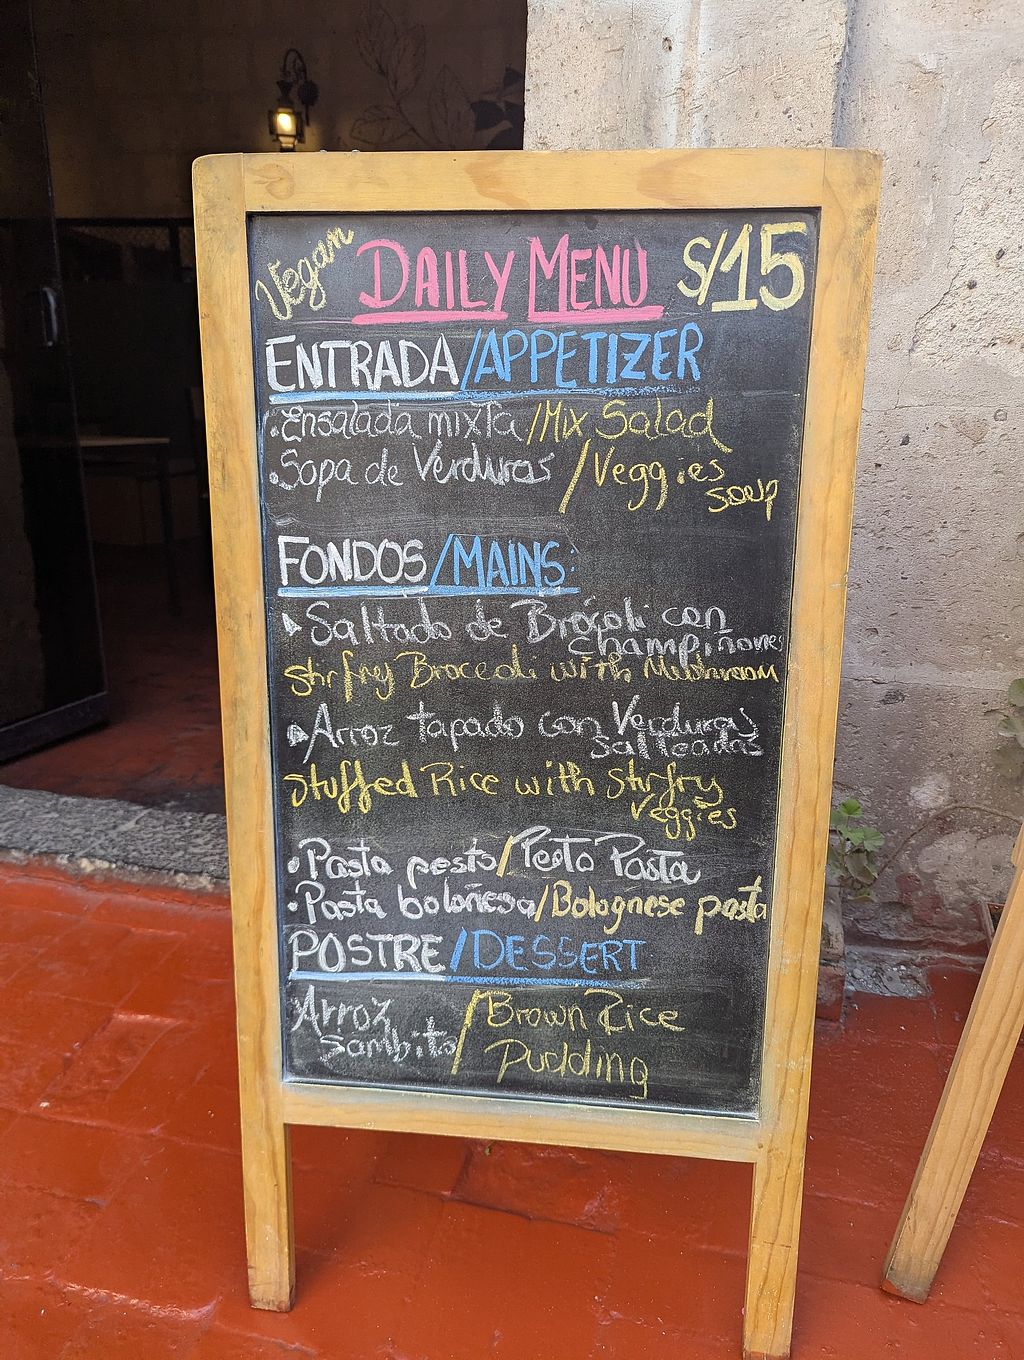 Vegan DAILY MENU S/15
ENTRADA/APPETIZER
• Ensalada mixta/Mix Salad
• Sopa de Verduras /Veggies
soup
FONDOS/MAINS:
Saltado de Brócoli con
Champiñones
stirfry Broccoli with Mushroom
Arroz tapado con Verduras
salteadas
stuffed Rice with stirfry
veggies
• Pasta pesto/Pesto Pasta
• Pasta boloñesa/Bolognese pasta
POSTRE/DESSERT
Arroz /Brown Rice
sambito Pudding